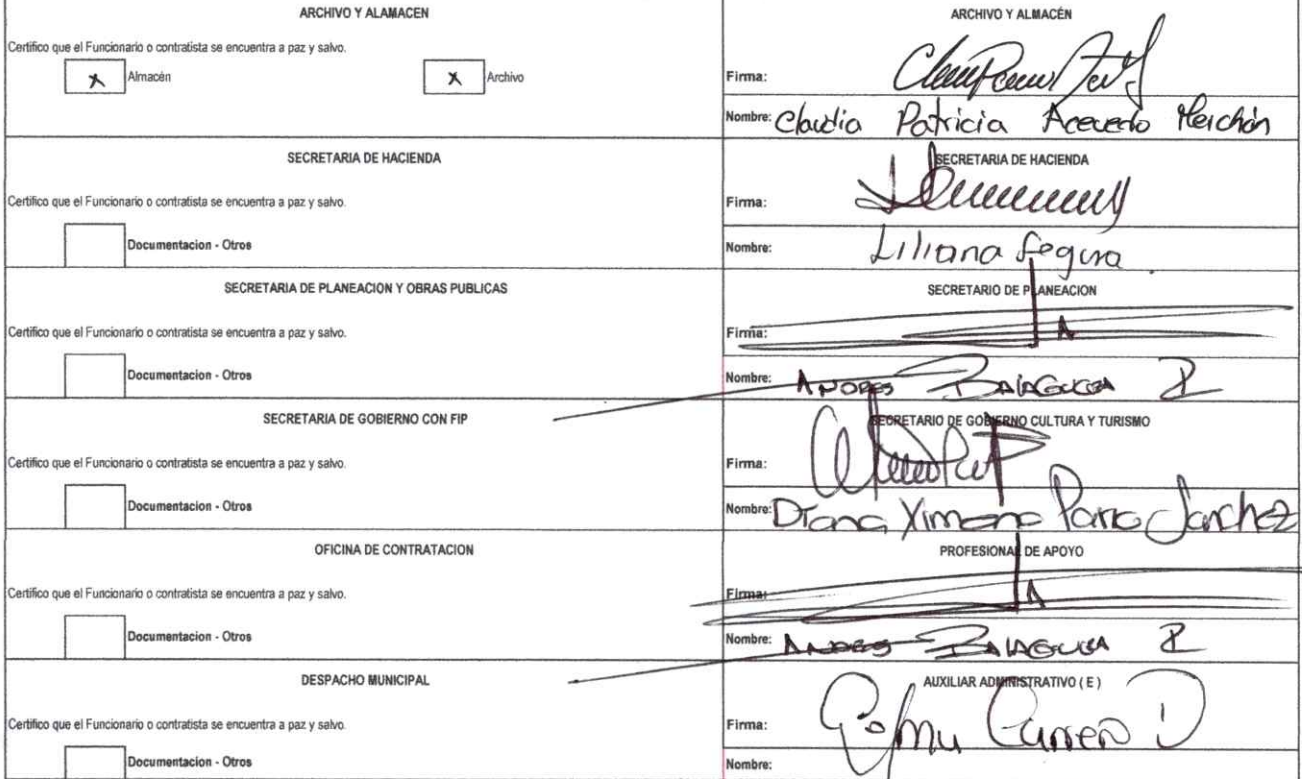 ARCHIVO Y ALAMACEN
Certifico que el Funcionario o contratista se encuentra a paz y salvo.
x Almacén
x Archivo
ARCHIVO Y ALMACÉN
Firma:
Nombre: Claudia Patricia Acevedo Merchán
SECRETARIA DE HACIENDA
Certifico que el Funcionario o contratista se encuentra a paz y salvo.
Documentacion - Otros
SECRETARIA DE HACIENDA
Firma:
Nombre: Liliana Segura
SECRETARIA DE PLANEACION Y OBRAS PUBLICAS
Certifico que el Funcionario o contratista se encuentra a paz y salvo.
Documentacion - Otros
SECRETARIO DE PLANEACION
Firma:
Nombre: ANDRES
SECRETARIA DE GOBIERNO CON FIP
Certifico que el Funcionario o contratista se encuentra a paz y salvo.
Documentacion - Otros
SECRETARIO DE GOBIERNO CULTURA Y TURISMO
Firma:
Nombre: Diana Ximena Parra Sanchez
OFICINA DE CONTRATACION
Certifico que el Funcionario o contratista se encuentra a paz y salvo.
Documentacion - Otros
PROFESIONAL DE APOYO
Firma:
Nombre: ANDRES
DESPACHO MUNICIPAL
Certifico que el Funcionario o contratista se encuentra a paz y salvo.
Documentacion - Otros
AUXILIAR ADMINISTRATIVO ( E )
Firma:
Nombre: